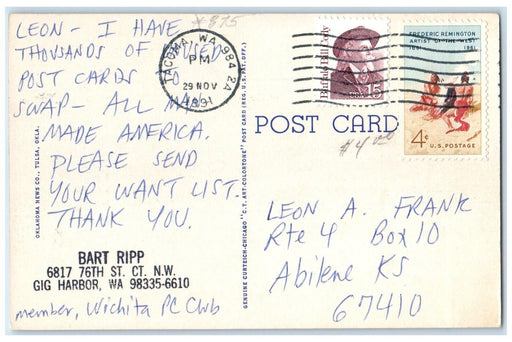 *875
LEON - I HAVE
THOUSANDS OF USED
POST CARDS TO
SWAP - ALL
MADE AMERICA.
PLEASE SEND
YOUR WANT LIST.
THANK YOU.
BART RIPP
6817 76TH ST. CT. N.W.
GIG HARBOR, WA 98335-6610
member, Wichita PC Club
OKLAHOMA NEWS CO., TULSA, OKLA.
GENUINE CURTEICH-CHICAGO "C.T. ART-COLORTONE" POST CARD (REG. U.S. PAT. OFF.)
TACOMA, WA 984 2A
PM
29 NOV
1991
Buffalo Bill Cody
USA 15
FREDERIC REMINGTON
ARTIST OF THE WEST
1861 1961
4¢
U.S. POSTAGE
POST CARD
#4
LEON A. FRANK
Rte 4 Box 10
Abilene KS
67410